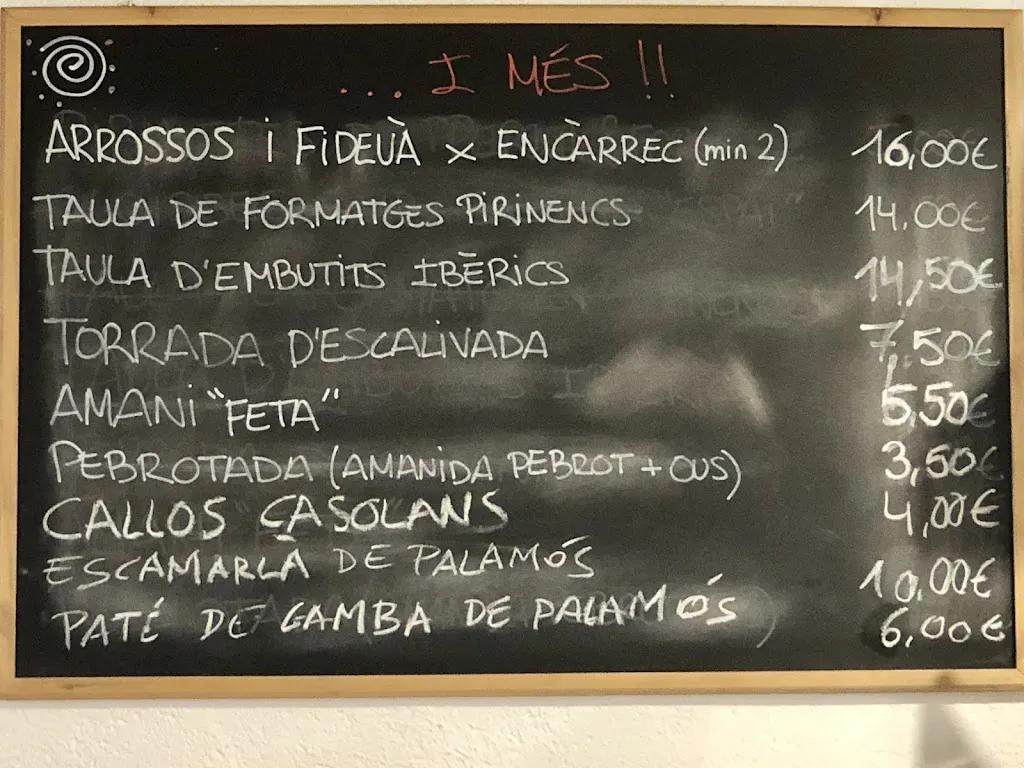 ... I MÉS !!
ARROSSOS i FiDEUÀ x ENCÀRREC (min 2) 16,00€
TAULA DE FORMATGES PiRiNENCS 14,00€
TAULA D'EMBUTiTS IBÈRiCS 14,50€
TORRADA D'ESCALiVADA 7,50€
AMANi "FETA" 5,50€
PEBROTADA (AMANiDA PEBROT + OUS) 3,50€
CALLOS CASOLANS 4,00€
ESCAMARLÀ DE PALAMÓS 10,00€
PATÉ DE GAMBA DE PALAMÓS 6,00€